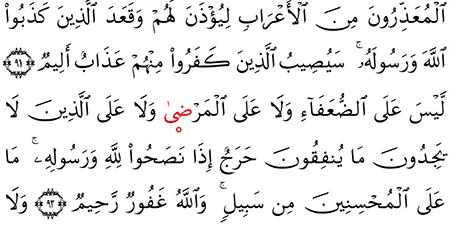 ٱلْمُعَذِّرُونَ مِنَ ٱلْأَعْرَابِ لِيُؤْذَنَ لَهُمْ وَقَعَدَ ٱلَّذِينَ كَذَبُوا۟
ٱللَّهَ وَرَسُولَهُۥ ۚ سَيُصِيبُ ٱلَّذِينَ كَفَرُوا۟ مِنْهُمْ عَذَابٌ أَلِيمٌ ﴿٩١﴾
لَّيْسَ عَلَى ٱلضُّعَفَآءِ وَلَا عَلَى ٱلْمَرْضَىٰ وَلَا عَلَى ٱلَّذِينَ لَا
يَجِدُونَ مَا يُنفِقُونَ حَرَجٌ إِذَا نَصَحُوا۟ لِلَّهِ وَرَسُولِهِۦ ۚ مَا
عَلَى ٱلْمُحْسِنِينَ مِن سَبِيلٍ ۚ وَٱللَّهُ غَفُورٌ رَّحِيمٌ ﴿٩٢﴾ وَلَا